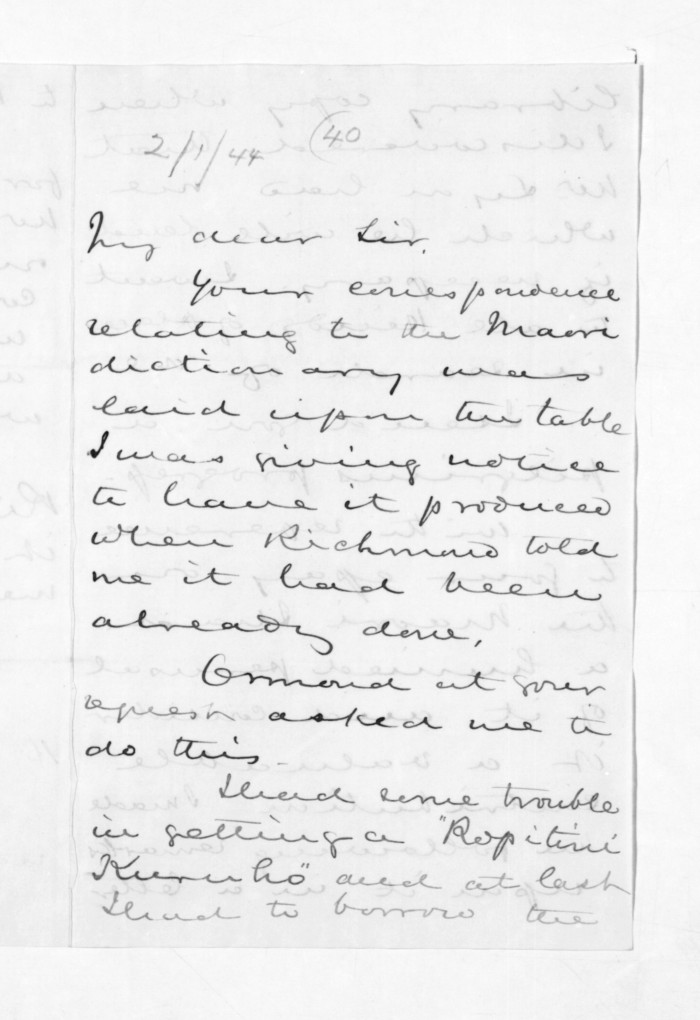 2/1/44 (40
My dear Sir,
Your correspondence
relating to the Maori
dictionary was
laid upon the table
I was giving notice
to have it produced
when Richmond told
me it had been
already done,
Ormond at your
request asked me to
do this
I had some trouble
in getting a "Ropitini
Kuruho" and at last
I had to borrow the